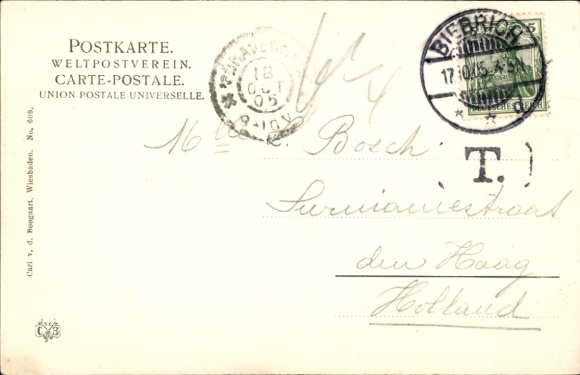 POSTKARTE.
WELTPOSTVEREIN.
CARTE-POSTALE.
UNION POSTALE UNIVERSELLE.
'S GRAVENHAGE
18
OCT
05
8-10V
BIEBRICH
17.10.05. 4-5N.
5
DEUTSCHES REICH
T.
Mlle Bosch.
Surinamestraat
den Haag
Holland
Carl v. d. Boogaart. Wiesbaden. No. 609.